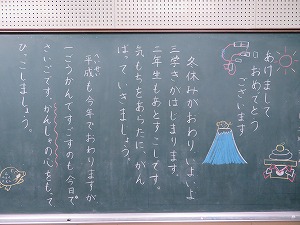 あけまして
おめでとう
ございます
冬休みがおわり、いよいよ
三学きがはじまります。
二年生もあとすこしです。
気もちをあらたに、がん
ばっていきましょう。
平成も今年でおわりますが
へいせい
一こうかんですごすのも今日で
さいごです。かんしゃの心をもって
ひっこしましょう。